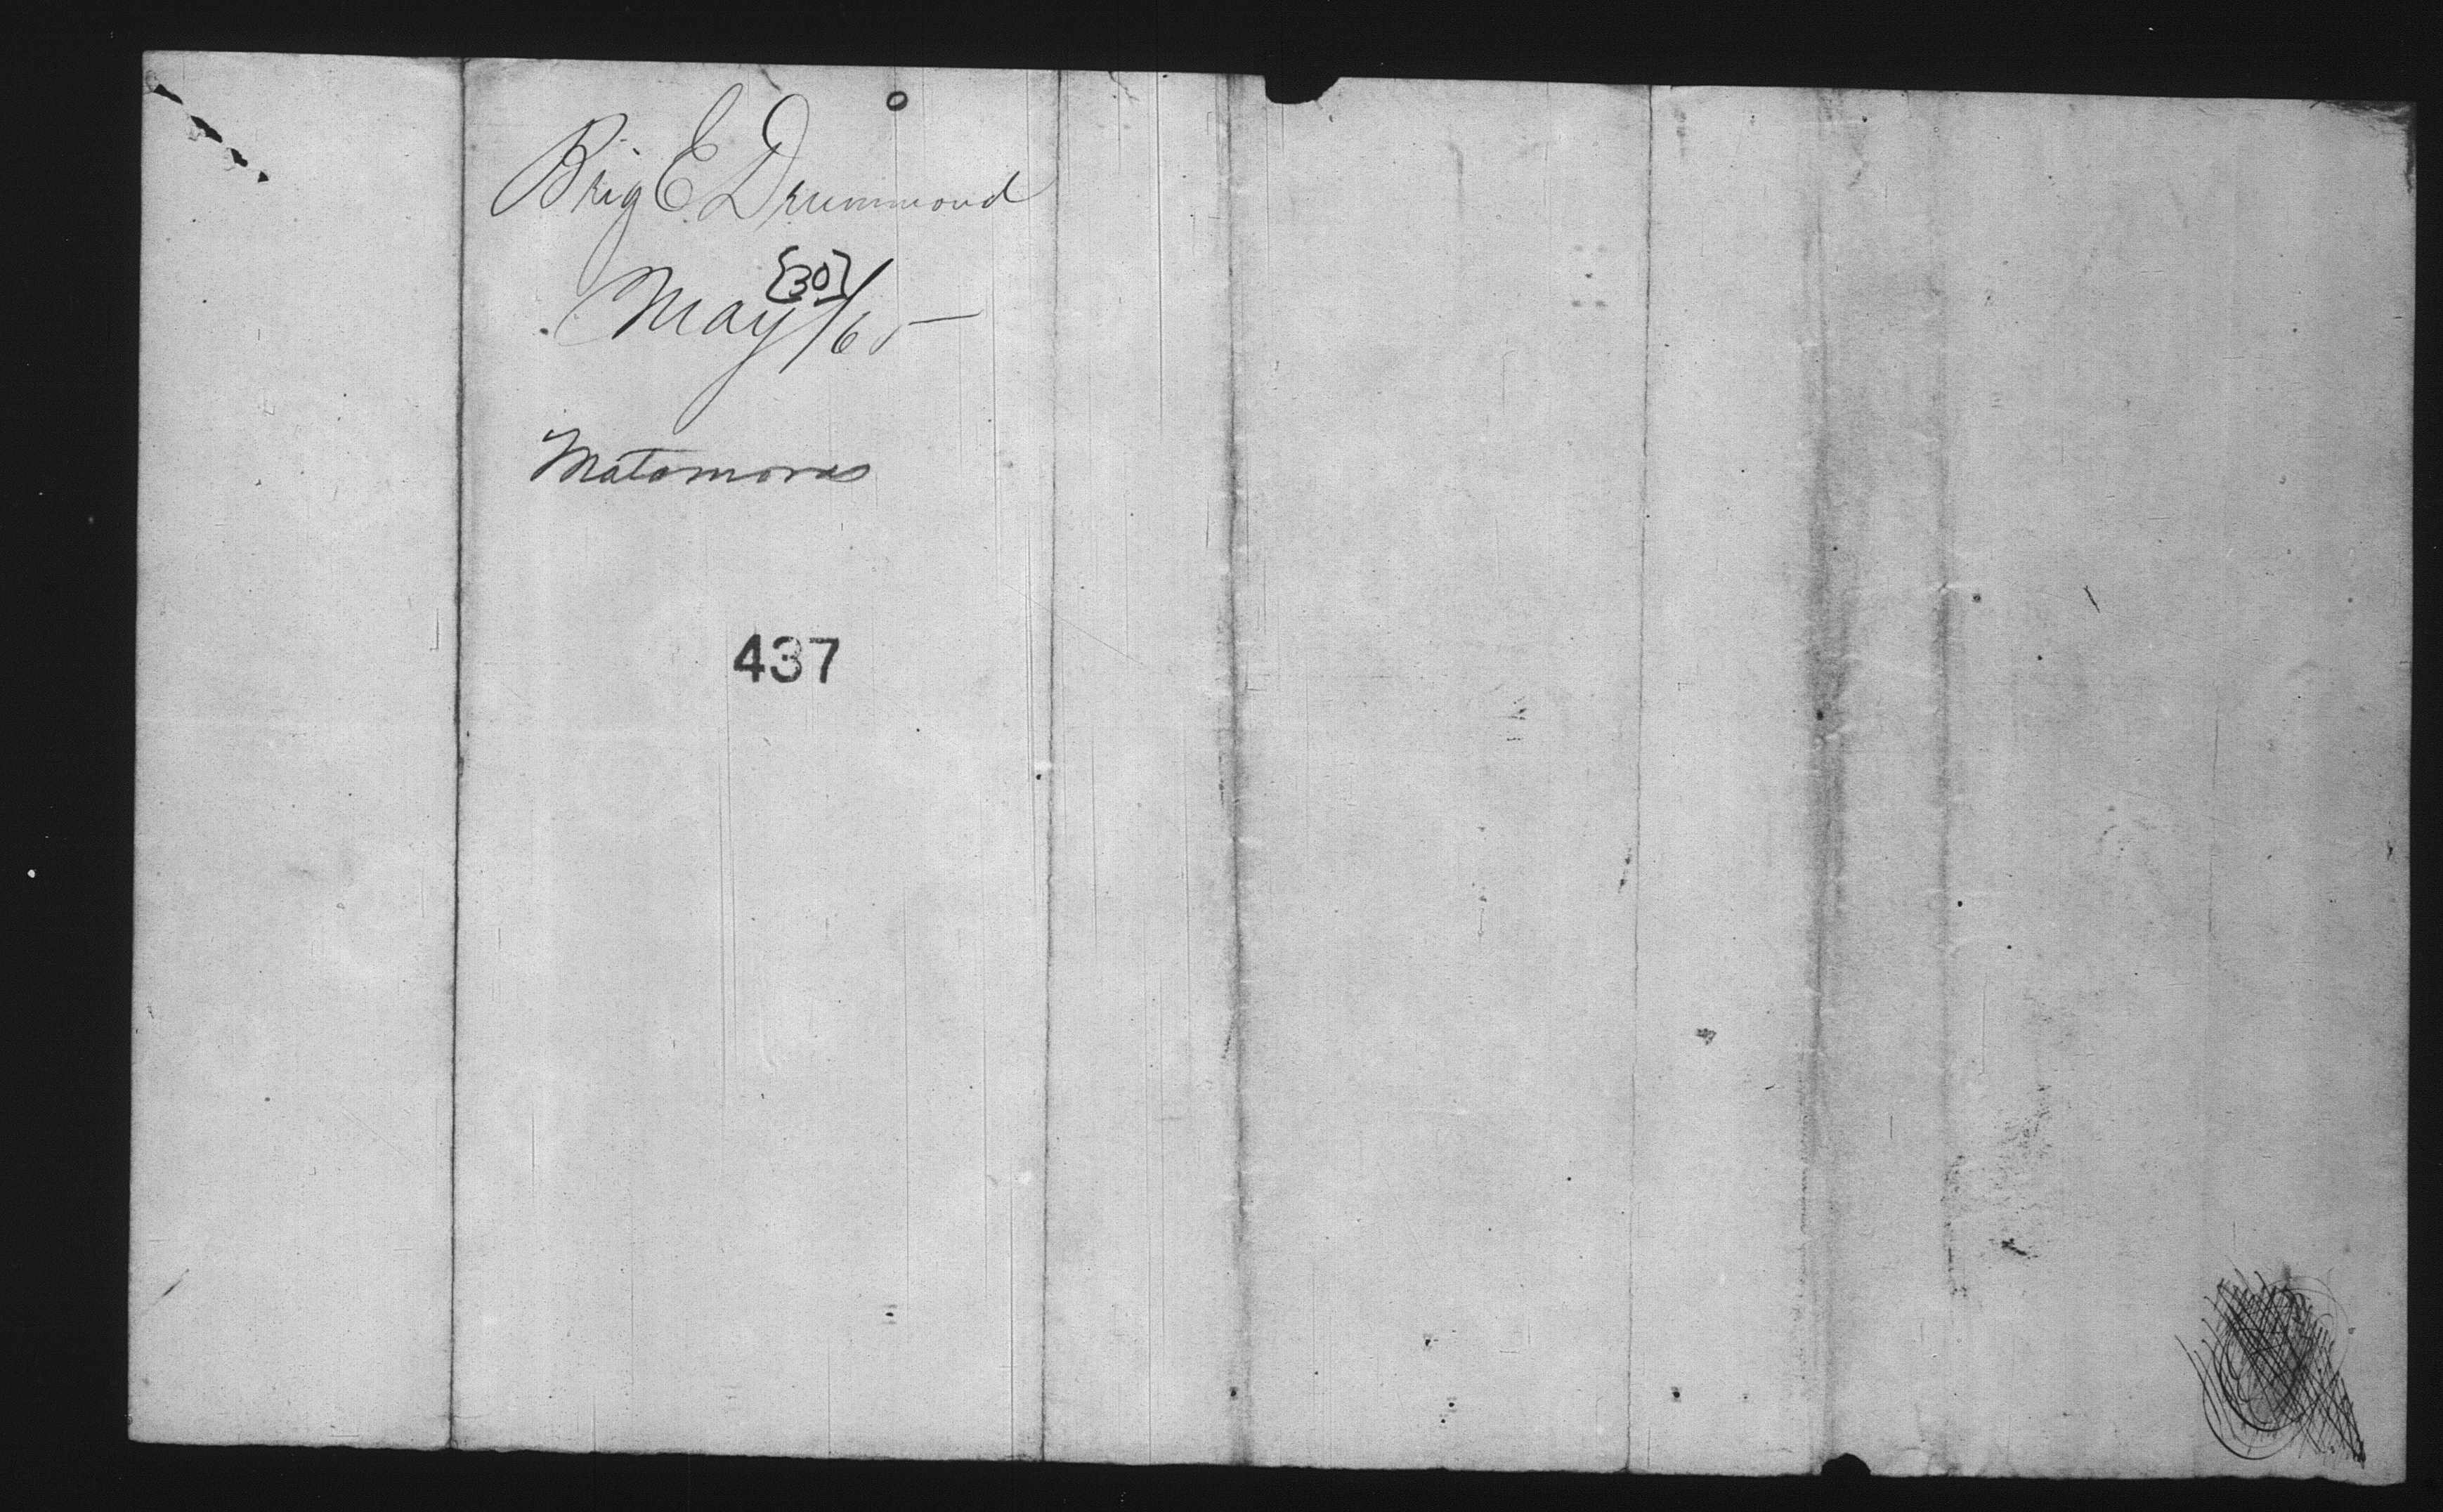 Brig E. Drummond
{30}
May /65
Matamoras
437